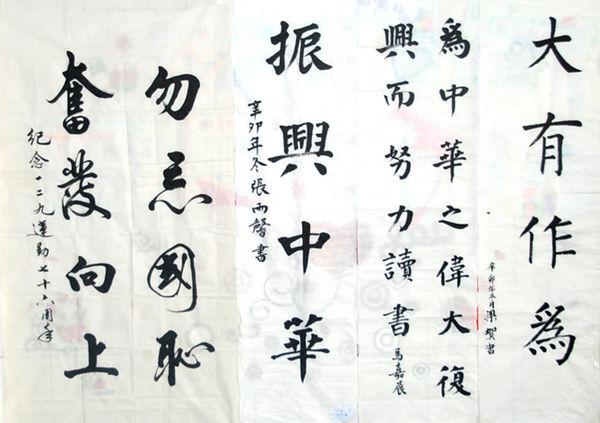 大有作為
辛卯年冬月梁賀書
為中華之偉大復
興而努力讀書 馬嘉
振興中華
辛卯年冬張雨馨書
勿忘國恥
奮發向上
紀念一二九運動七十六周年